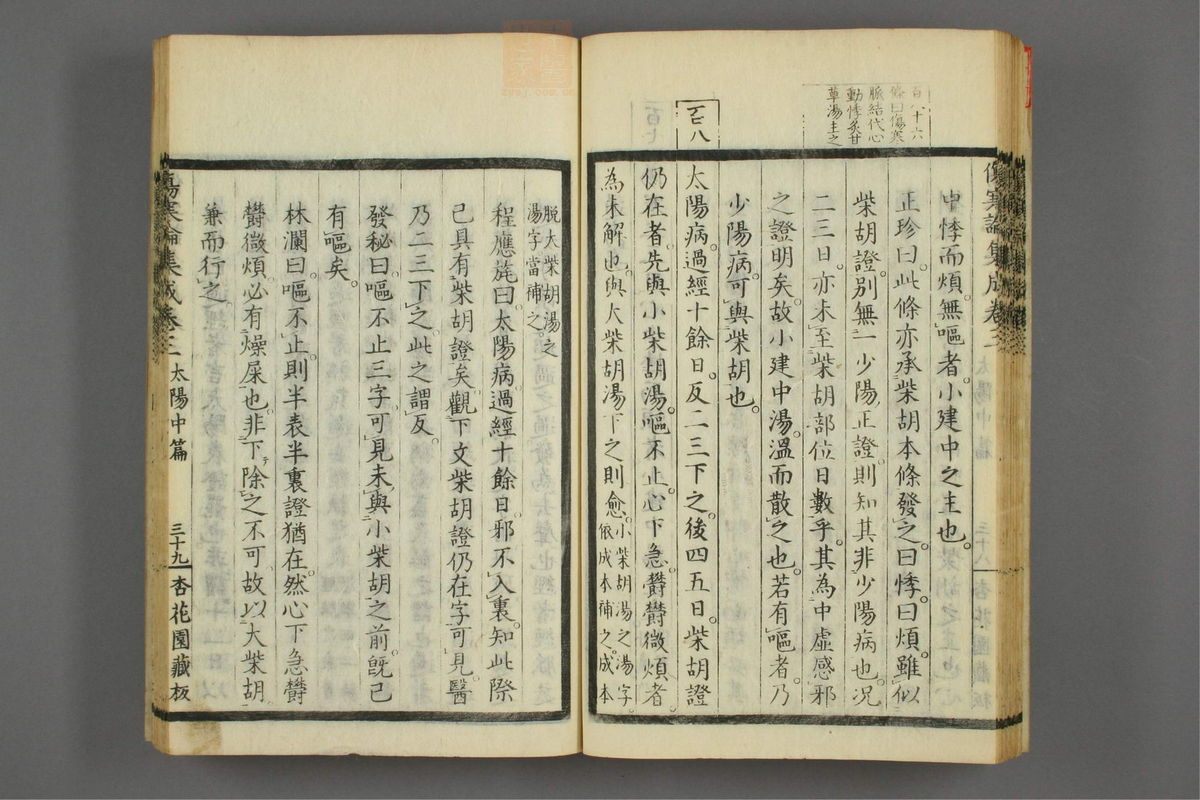 百八十六
條曰傷寒
脈結代心
動悸炙甘
草湯主之
傷寒論集成卷三
太陽中篇
三十八
杏花園藏板
中悸而煩無嘔者小建中之主也。
正珍曰此條亦承柴胡本條發之曰悸曰煩雖似
柴胡證別無一少陽正證則知其非少陽病也況
二三日亦未至柴胡部位日數乎其為中虛感邪
之證明矣故小建中湯溫而散之也若有嘔者乃
少陽病可與柴胡也。
百八
太陽病過經十餘日反二三下之後四五日柴胡證
仍在者先與小柴胡湯嘔不止心下急鬱鬱微煩者
為未解也與大柴胡湯下之則愈。小柴胡湯之湯字
依成本補之成本
脫大柴胡湯之
湯字當補之。
程應旄曰太陽病過經十餘日邪不入裏知此際
己具有柴胡證矣觀下文柴胡證仍在字可見醫
乃二三下之此之謂反。
發秘曰嘔不止三字可見未與小柴胡之前既己
有嘔矣。
林瀾曰嘔不止則半表半裏證猶在然心下急鬱
鬱微煩必有燥屎也非下除之不可故以大柴胡
兼而行之。
傷寒論集成卷三
太陽中篇
三十九
杏花園藏板